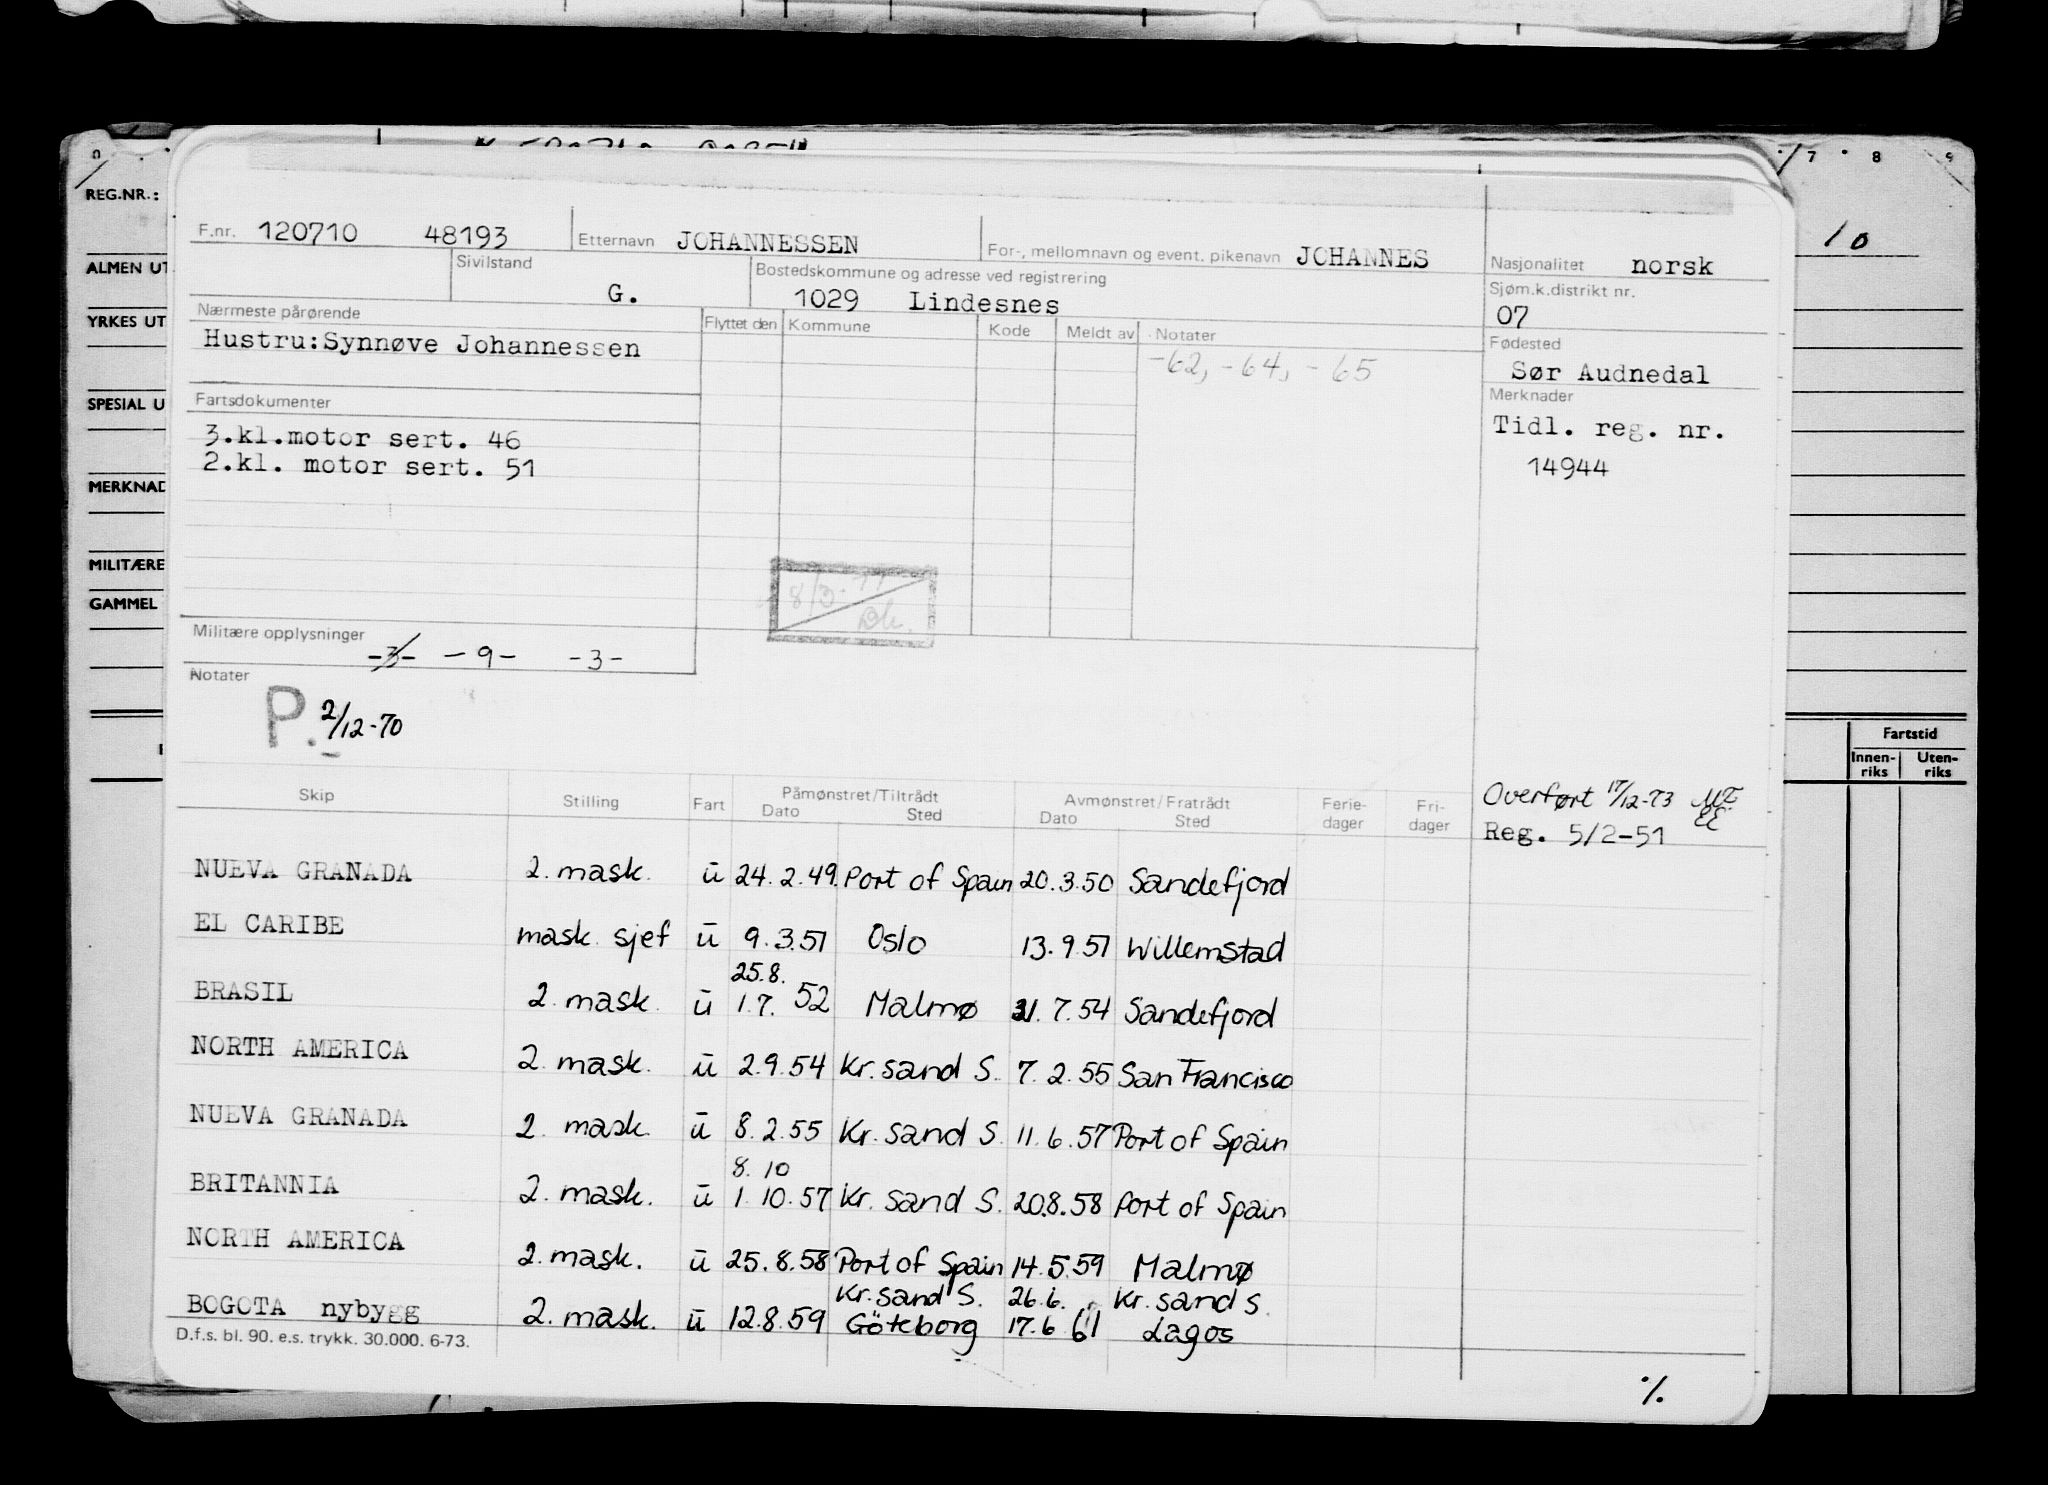 7 8 9
REG.NR.:
10
F.nr. 120710 48193 Etternavn JOHANNESSEN For-, mellomnavn og event. pikenavn JOHANNES Nasjonalitet norsk
ALMEN UT
Sivilstand G. Bostedskommune og adresse ved registrering 1029 Lindesnes Sjøm.k.distrikt nr. 07
YRKES UT
Nærmeste pårørende Flyttet den Kommune Kode Meldt av Notater Fødested
Hustru:Synnøve Johannessen -62, -64, -65 Sør Audnedal
SPESIAL U
Fartsdokumenter Merknader
3.kl.motor sert. 46 Tidl. reg. nr.
2.kl. motor sert. 51 14944
MERKNAD
MILITÆRE
GAMMEL
8/3-77
Militære opplysninger -3- -9- -3-
Notater
P. 2/12-70
Fartstid
Innen-riks Uten-riks
Skip Stilling Fart Påmønstret/Tiltrådt Dato Sted Avmønstret/Fratrådt Dato Sted Ferie-dager Fri-dager
Overført 17/12-73
Reg. 5/2-51
NUEVA GRANADA 2. mask. ū 24.2.49. Port of Spain 20.3.50 Sandefjord
EL CARIBE mask. sjef ū 9.3.51 Oslo 13.9.51 Willemstad
25.8.
BRASIL 2. mask. ū 1.7. 52 Malmø 31.7.54 Sandefjord
NORTH AMERICA 2. mask. ū 2.9.54 Kr.sand S. 7.2.55 San Francisco
NUEVA GRANADA 2. mask. ū 8.2.55 Kr.sand S. 11.6.57 Port of Spain
8.10
BRITANNIA 2. mask. ū 1.10.57 Kr.sand S. 20.8.58 Port of Spain
NORTH AMERICA 2. mask. ū 25.8.58 Port of Spain 14.5.59 Malmø
Kr.sand S. 26.6. Kr.sand S.
BOGOTA nybygg 2. mask. ū 12.8.59 Göteborg 17.6 61 Lagos
D.f.s. bl. 90. e.s. trykk. 30.000. 6-73.
./.